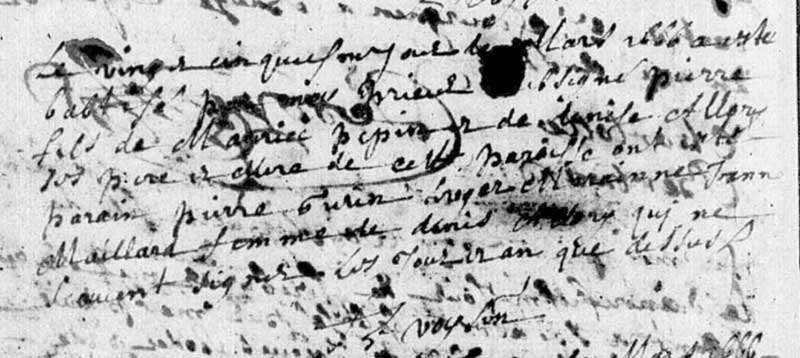 Le vingt cinquiesme jour de Mars 1666 a este
baptisé par moy prieur soubsigné pierre
fils de Maurice pepin et de denise Mery
ses pere et Mere de cette paroisse ont esté
parain pierre Gurin Marainne Jeann
Maillard femme de denis Mery qui ne
scavent signer Les Jour et an que dessus
voysin